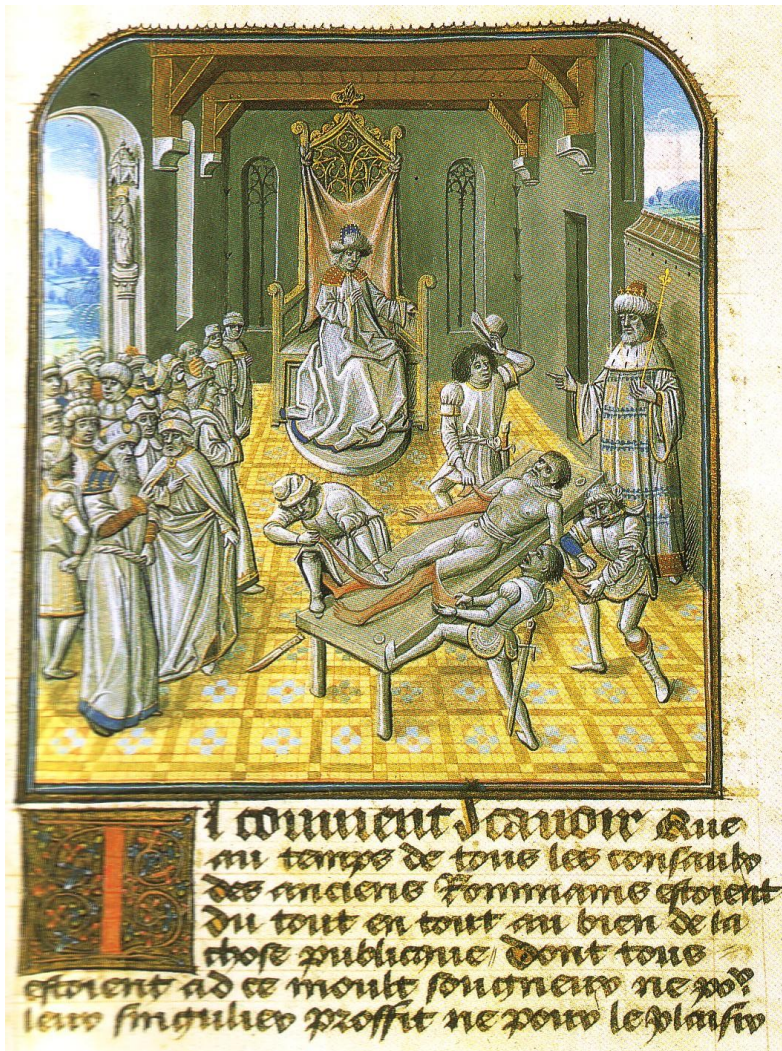 Il convient Scavoir Que
au temps de tous les consaulx
des anciens Rommains estoient
du tout en tout au bien de la
chose publicque / Dont tous
estoient ad ce moult songneux ne poʳ
leur singulier proffit ne pour le plaisir